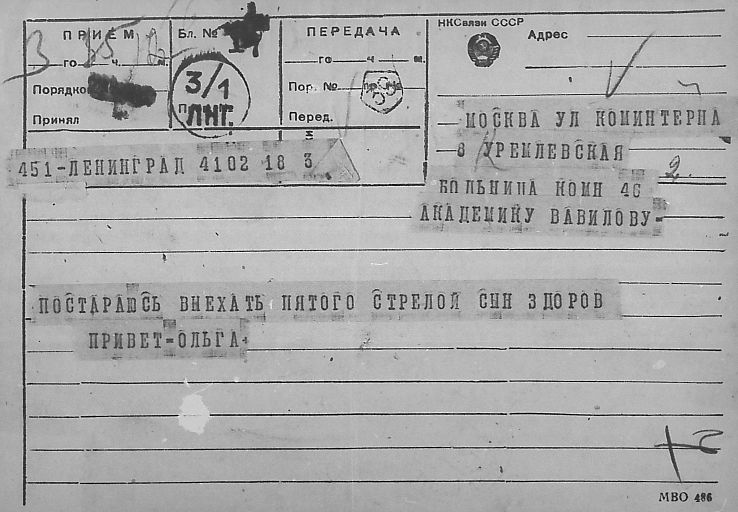 ПРИЁМ
го ч. м.
Порядко
Принял
Бл. №
3/1
ЛНТ.
ПЕРЕДАЧА
го ч. м.
Пор. №
Перед.
НКСвязи СССР
Адрес
МОСКВА УЛ КОМИНТЕРНА
6 УРЕМЛЕВСКАЯ
БОЛЬНИЦА КОМН 46
АКАДЕМИКУ ВАВИЛОВУ=
451-ЛЕНИНГРАД 4102 18 3
2
ПОСТАРАЮСЬ ВЫЕХАТЬ ПЯТОГО СТРЕЛОЙ СЫН ЗДОРОВ
ПРИВЕТ=ОЛЬГА
МВО 486